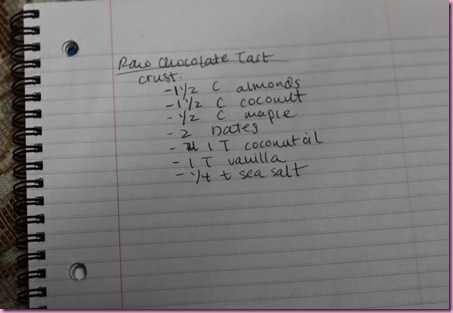 Raw Chocolate Tart
crust:
- 1 1/2 C almonds
- 1 1/2 C coconut
- 1/2 C maple
- 2 Dates
- 1 T coconut oil
- 1 T vanilla
- 1/4 t sea salt